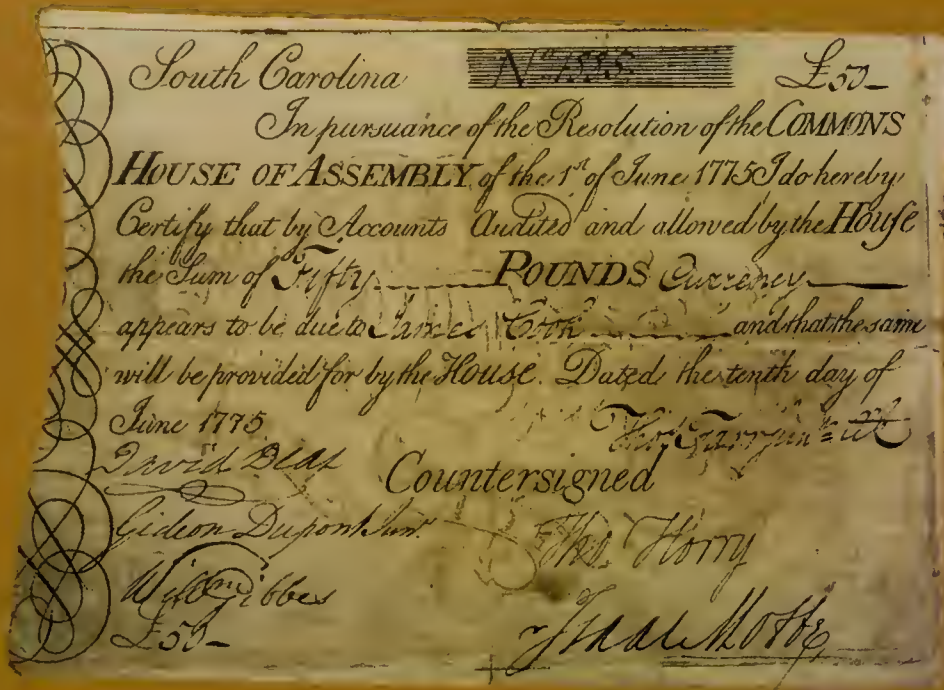 South Carolina £50-
In pursuance of the Resolution of the COMMONS
HOUSE OF ASSEMBLY of the 1st of June 1775 I do hereby
Certify that by Accounts Audited and allowed by the House
the Sum of Fifty POUNDS Currency
appears to be due to James Cook and that the same
will be provided for by the House. Dated the tenth day of
June 1775
Countersigned
Gideon Dupont Junr. Tho. Horry
Willm Gibbes
£50- Isaac Motte